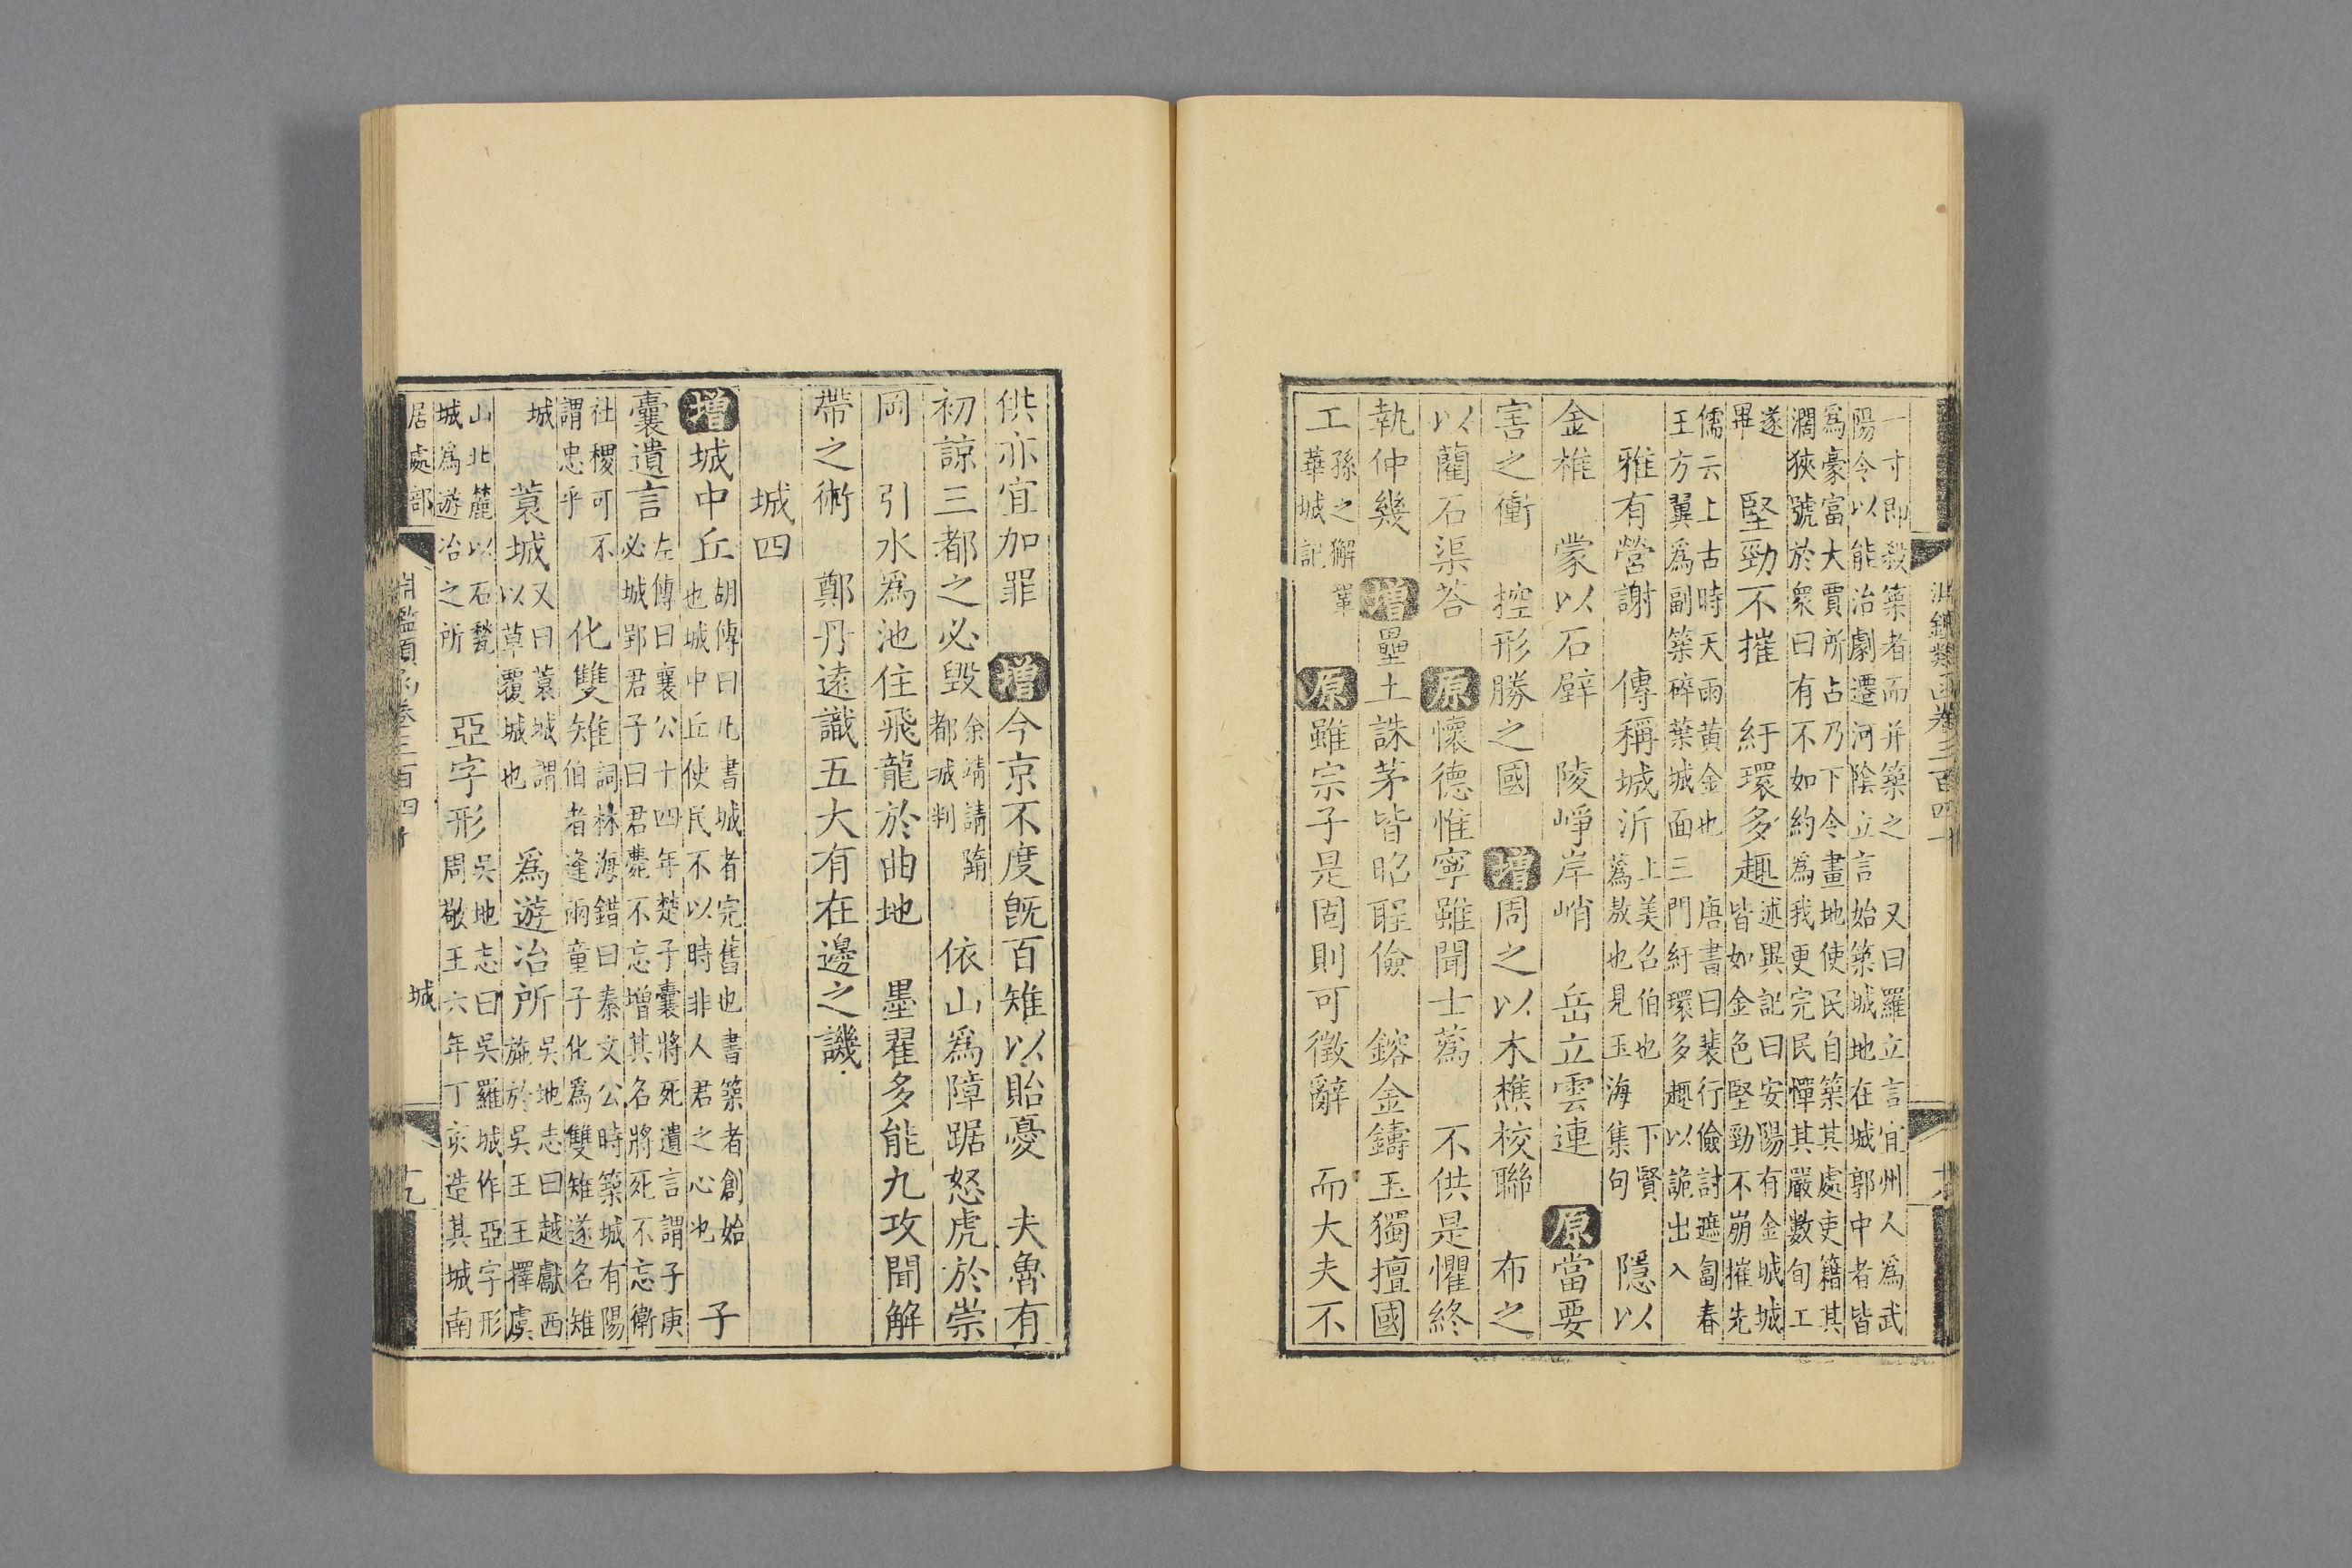 一寸即殺築者而并築之 又曰羅立言宜州人為武
陽令以能治劇遷河陰立言始築城地在城郭中者皆
為豪富大賈所占乃下令畫地使民自築其處吏籍其
濶狹號於衆曰有不如約為我更完民憚其嚴數旬工
遂畢 堅勁不摧 紆環多趣 述異記曰安陽有金城城
皆如金色堅勁不崩摧先
儒云上古時天雨黄金也 唐書曰裴行儉討遮匐春
王方翼為副築碎葉城面三門紆環多趣以詭出入
雅有營謝 傳稱城沂 上美召伯也 下賢蔿敖也見玉海集句 隱以
金椎 蒙以石壁 陵崢岸峭 岳立雲連 原當要
害之衝 控形勝之國 增周之以木樵校聯 布之
以藺石渠荅 原懷德惟寧雖聞士蔿 不供是懼終
執仲幾 增壘土誅茅皆昭聖儉 鎔金鑄玉獨擅國
工 孫之獬 華城記 原雖宗子是固則可徵辭 而大夫不
供亦宜加罪 增今京不度旣百雉以貽憂 夫魯有
初諒三都之必毀 余靖請隋都城判 依山爲障踞怒虎於崇
岡 引水爲池住飛龍於曲地 墨翟多能九攻聞解
帶之術 鄭丹遠識五大有在邊之譏
城四
增城中丘 胡傳曰凡書城者完舊也書築者創始
也城中丘使民不以時非人君之心也 子
囊遺言 左傳曰襄公十四年楚子囊將死遺言謂子庚
必城郢君子曰君薨不忘增其名將死不忘衛
社稷可不謂忠乎 化雙雉 詞林海錯曰秦文公時築城有陽
伯者逢兩童子化爲雙雉遂名雉
城 蓑城 又曰蓑城謂以草覆城也 爲遊冶所 吳地志曰越獻西
施於吳王王擇虞
山北麓以石甃城爲遊冶之所 亞字形 吳地志曰吳羅城作亞字形
周敬王六年丁亥造其城南
居處部 淵鑑類函卷三百四十 城 十九